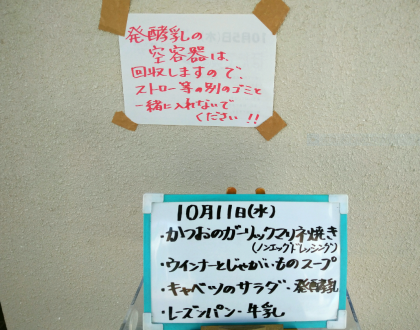 発酵乳の
空容器は、
回収しますので、
ストロー等の別のゴミと
一緒に入れないで
ください!!
10月11日(水)
・かつおのガーリックマリネ焼き
(ノンエッグドレッシング)
・ウインナーとじゃがいものスープ
・キャベツのサラダ・発酵乳
・レーズンパン・牛乳